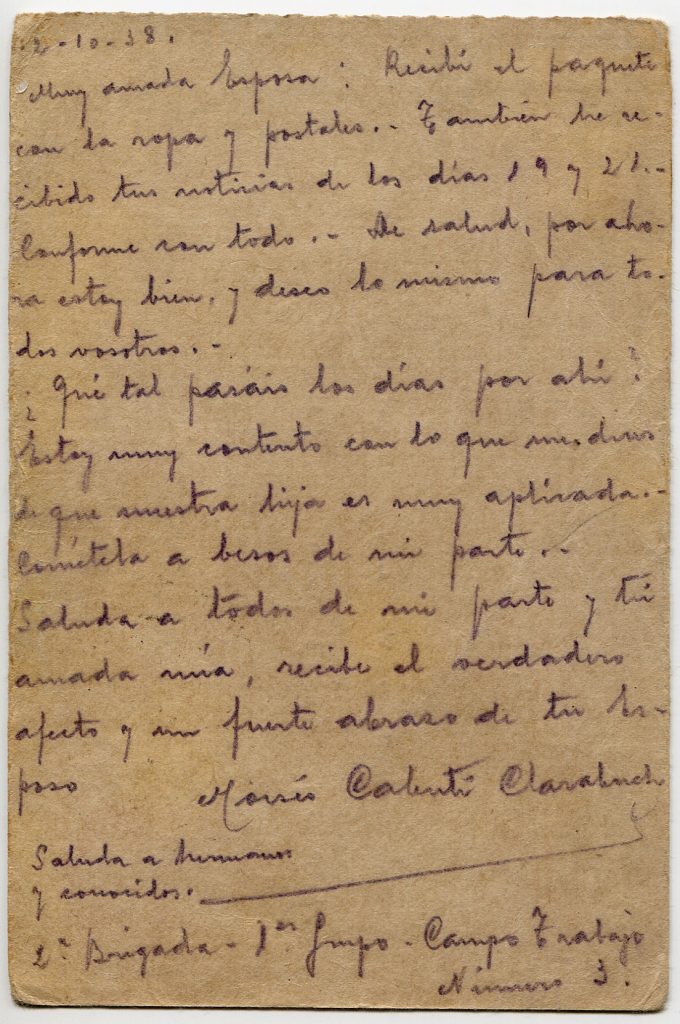 2-10-38.
Muy amada Esposa: Recibí el paquete
con la ropa y postales.- También he re-
cibido tus noticias de los días 19 y 21.-
Conforme con todo.- De salud, por aho-
ra estoy bien, y deseo lo mismo para to-
dos vosotros.-
¿Qué tal pasáis los días por ahí?
Estoy muy contento con lo que me dices
de que nuestra hija es muy aplicada.-
Cométela a besos de mi parte.-
Saluda a todos de mi parte y tú
amada mía, recibe el verdadero
afecto y un fuerte abrazo de tu Es-
poso Moisés
Saluda a hermanos
y conocidos.
2ª Brigada - 1er Grupo - Campo Trabajo
Número 3.